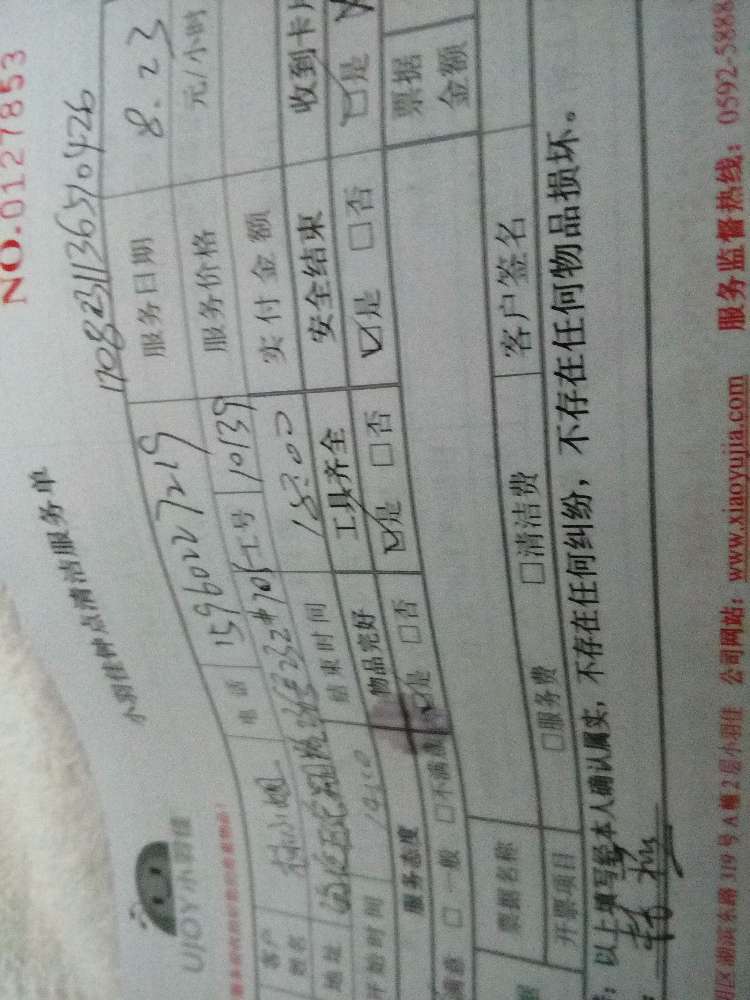 NO.0127853
小羽佳钟点清洁服务单
UJOY小羽佳
1708231136510426
客户姓名 林小姐 电话 15960227219 服务日期 8.23
地址 232#705 工号 10139 服务价格 元/小时
开始时间 结束时间 18:00 实付金额
服务态度 物品完好 工具齐全 安全结束 收到卡片
满意 □一般 □不满意 ☑是 □否 ☑是 □否 ☑是 □否 ☑是
票据名称 票据金额
开票项目 □服务费 □清洁费 客户签名
以上填写经本人确认属实，不存在任何纠纷，不存在任何物品损坏。
明区湖滨东路319号A幢2层小羽佳 公司网站：www.xiaoyujia.com 服务监督热线：0592-5888